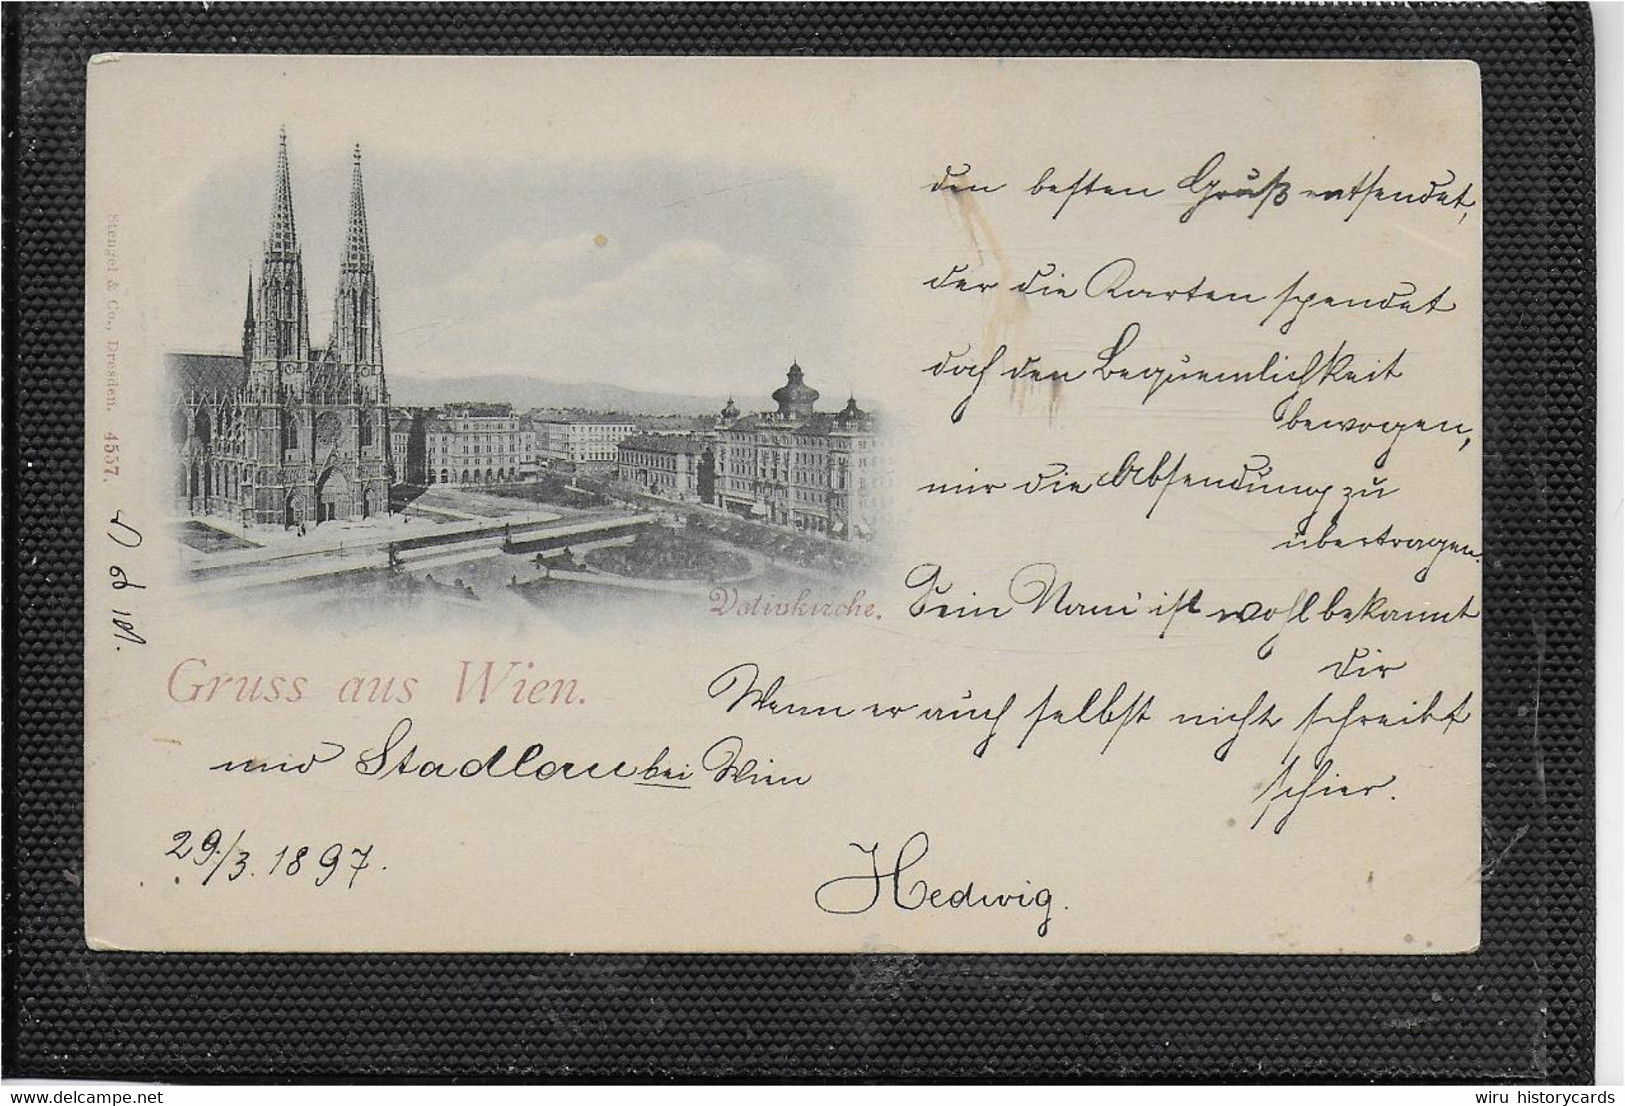 den besten Gruß entsendet,
der die Karten spendet
doch den Bequemlichkeit
bewogen,
mir die Absendung zu
übertragen.
Sein Nam' ist wohl bekannt
dir
Wenn er auch selbst nicht schreibt
hier.
Stadlau bei Wien
29./3. 1897.
Hedwig.
Votivkirche.
Gruss aus Wien.
Stengel & Co., Dresden. 4557.
wiru historycards
www.delcampe.net